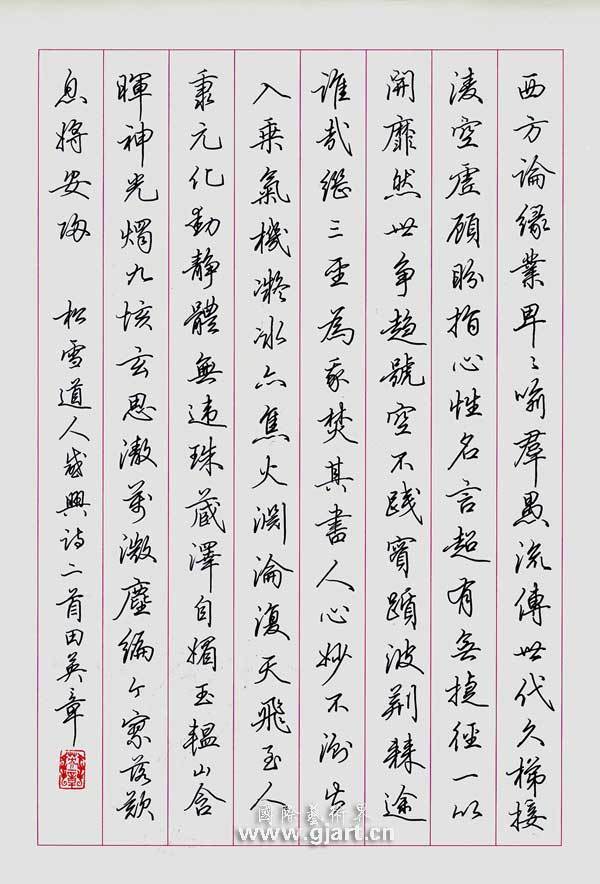 西方論緣業卑卑喻羣愚流傳世代久梯接
凌空虛顧盼指心性名言超有無捷徑一以
開靡然世爭趨號空不踐實躓彼荆棘途
誰哉繼三聖為我焚其書人心妙不測出
入乘氣機凝冰亦焦火淵淪復天飛至人
秉元化動靜體無違珠藏澤自媚玉韞山含
暉神光燭九垓玄思澈萬微塵編今寥落歎
息將安歸 松雪道人感興詩二首田英章
國際藝術界
www.gjart.cn